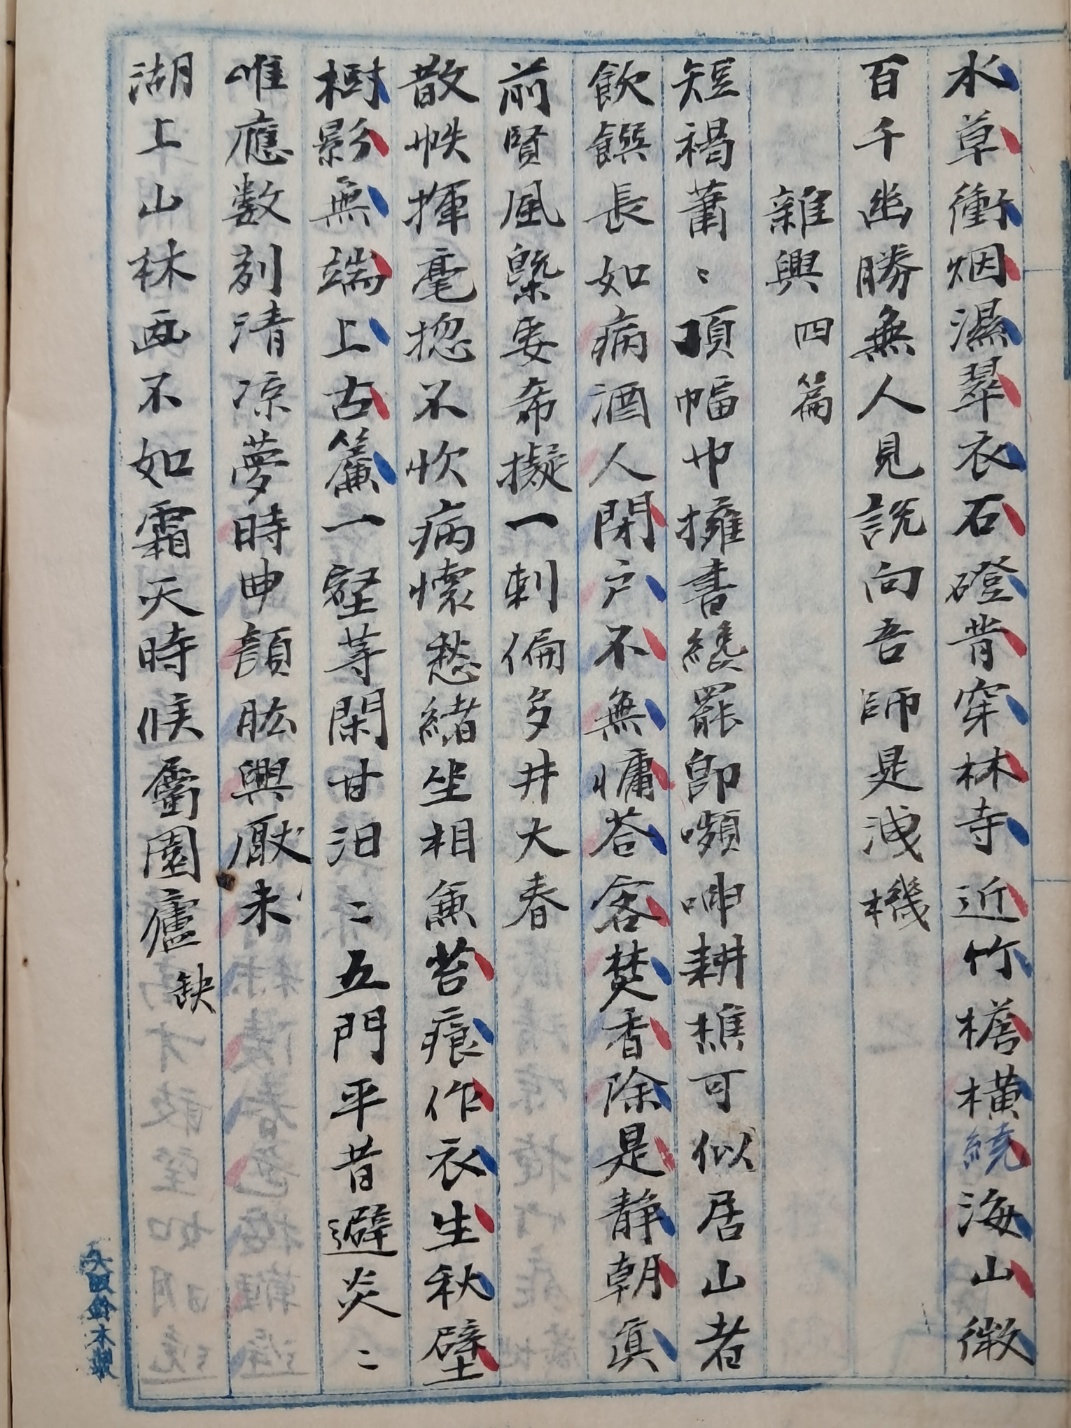 水草衝烟濕翠衣石磴背穿林寺近竹檐横繞海山微
百千幽勝無人見説向吾師是洩機
雜興四篇
短褐蕭〻頂幅巾擁書纔罷即嚬呻耕樵可似居山者
飲饌長如病酒人閉户不無慵荅客焚香除是靜朝真
前賢風槩要希擬一刺偏多井大春
散帙揮毫揔不忺病懷愁緒坐相兼苔痕作衣生秋壁
樹影無端上古簾一壑等閑甘汨〻五門平昔避炎〻
唯應數刻清凉夢時曲顔肱興厭未
湖上山林画不如霜天時候屬園廬缺